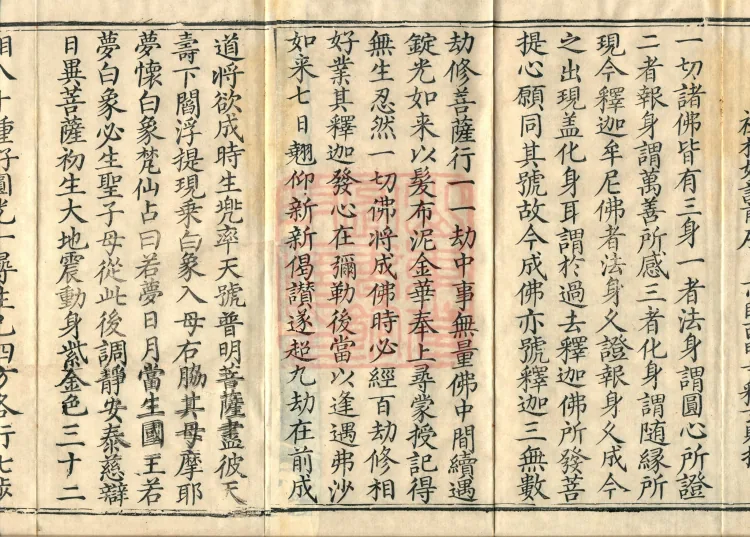 一切諸佛皆有三身一者法身謂圓心所證
二者報身謂萬善所感三者化身謂随縁所
現今釋迦牟尼佛者法身久證報身久成今
之出現盖化身耳謂於過去釋迦佛所發菩
提心願同其號故今成佛亦號釋迦三無數
劫修菩薩行一一劫中事無量佛中間續遇
錠光如来以髪布泥金華奉上尋蒙授記得
無生忍然一切佛將成佛時必經百劫修相
好業其釋迦發心在彌勒後當以逢遇弗沙
如来七日翹仰新新偈讃遂超九劫在前成
道將欲成時生兠率天號普明菩薩盡彼天
壽下閻浮提現乘白象入母右脇其母摩耶
夢懷白象梵仙占曰若夢日月當生國王若
夢白象必生聖子母從此後調靜安泰慈辯
日異菩薩初生大地震動身紫金色三十二
相八十種好圓光一尋生已四方各行七步